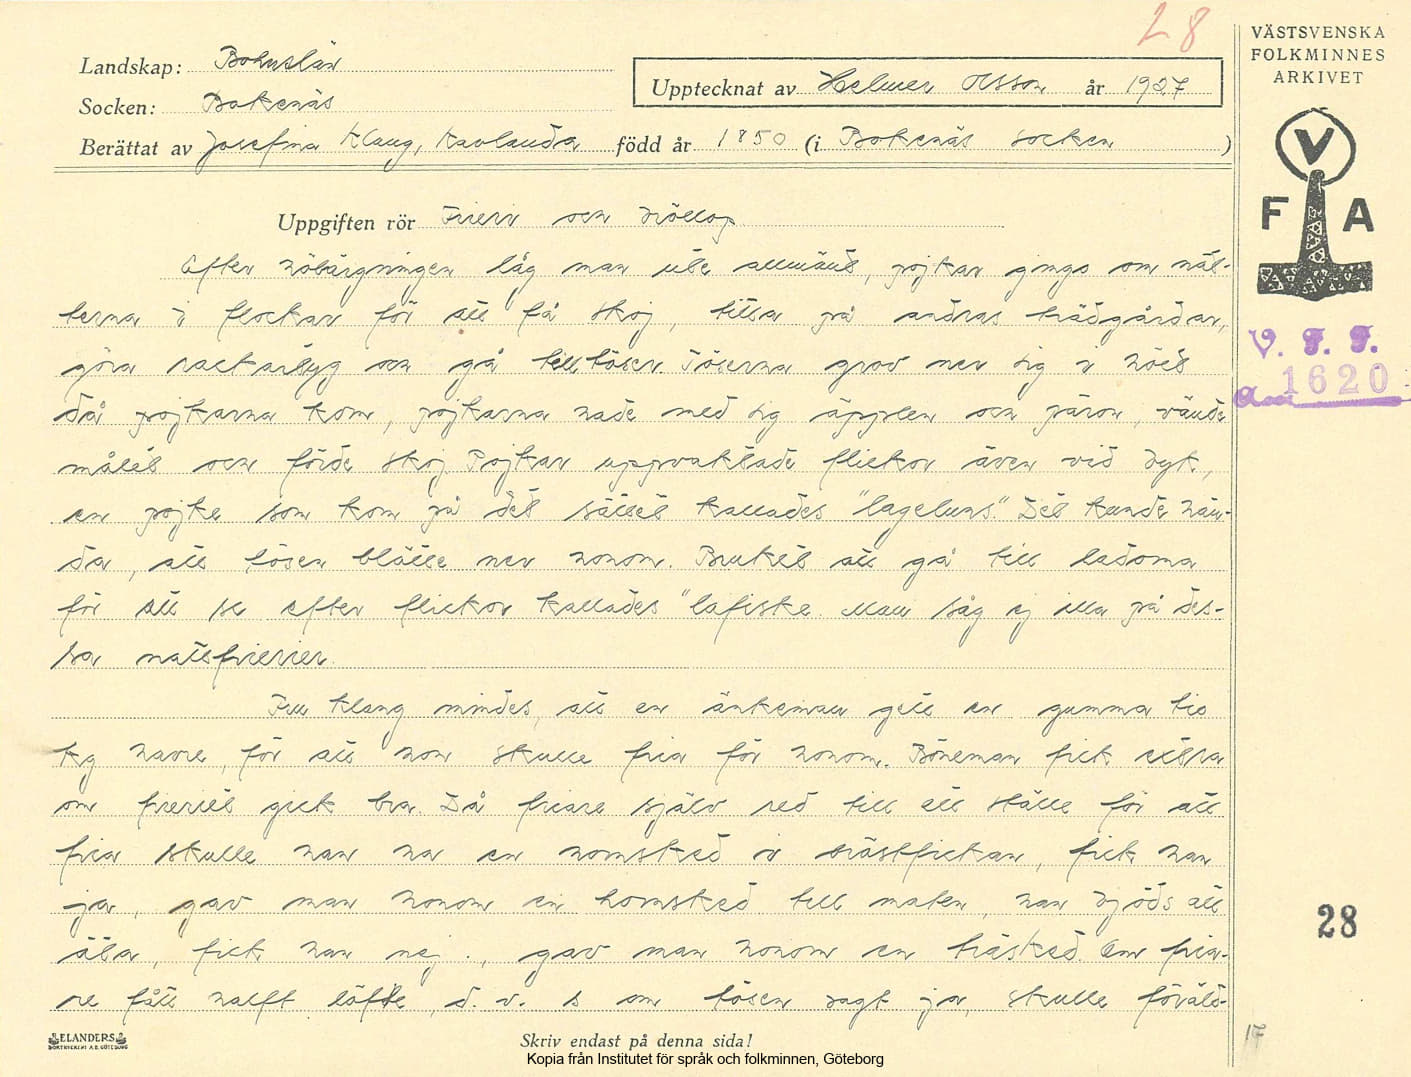 28
VÄSTSVENSKA
FOLKMINNES
ARKIVET
Landskap: Bohuslän
Socken: Bokenäs
Upptecknat av Helmer Olsson år 1927
Berättat av Josefina Klang, Kavlanda född år 1850 (i Bokenäs socken )
V
F A
Uppgiften rör Frieri och bröllop
Efter höbärgningen låg man ute allmänt, pojkar gingo om nät-
terna i flockar för att få skoj, titta på andras trädgårdar,
göra rackartyg och gå till töser. Töserna grov ner sig i höet
då pojkarna kom, pojkarna hade med sig äpplen och päron, vände
målet och förde skoj. Pojkar uppvaktade flickor även vid dyk,
en pojke som kom på det sättet kallades "lageluns". Det kunde hän-
da, att tösen blötte ner honom. Bruket att gå till ladorna
för att se efter flickor kallades "lafiske. Man såg ej illa på des-
sa nattfrierier.
Fru Klang mindes, att en änkeman gett en gumma tio
kg havre, för att hon skulle fria för honom. Böneman fick extra
om frieriet gick bra. Då friare själv red till ett ställe för att
fria skulle han ha en hornsked i bröstfickan, fick han
ja, gav man honom en hornsked till maten, han bjöds att
äta, fick han nej., gav man honom en träsked. Om fria-
re fått halft löfte, d. v. s om tösen sagt ja, skulle föräld-
V. F. F.
acc 1620
28
17
ELANDERS
BOKTRYCKERI A.B. GÖTEBORG
Skriv endast på denna sida!
Kopia från Institutet för språk och folkminnen, Göteborg